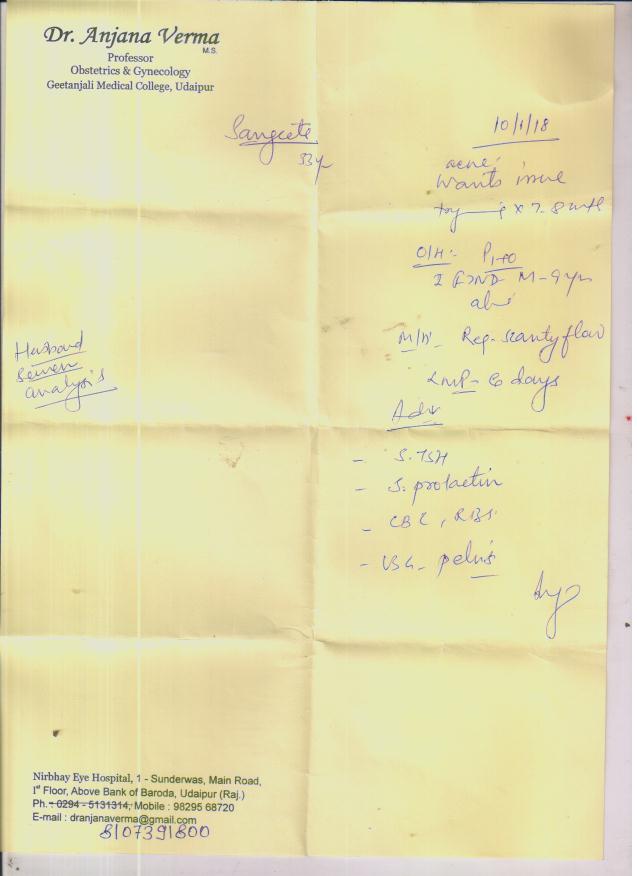 Dr. Anjana Verma
M.S.
Professor
Obstetrics & Gynecology
Geetanjali Medical College, Udaipur
Sangeeta
33y
10/1/18
acne
wants issue
trying x 7-8 mth
O/H:- P1+0
I FTND M-9yrs
M/H Reg-scanty flow
LMP- 6 days
Adv
- S.TSH
- S. prolactin
- CBC, RBS
- USG- pelvis
Husband
Semen
analysis
Nirbhay Eye Hospital, 1 - Sunderwas, Main Road,
Ist Floor, Above Bank of Baroda, Udaipur (Raj.)
Ph. - 0294 - 5131314, Mobile : 98295 68720
E-mail : dranjanaverma@gmail.com
8107391800